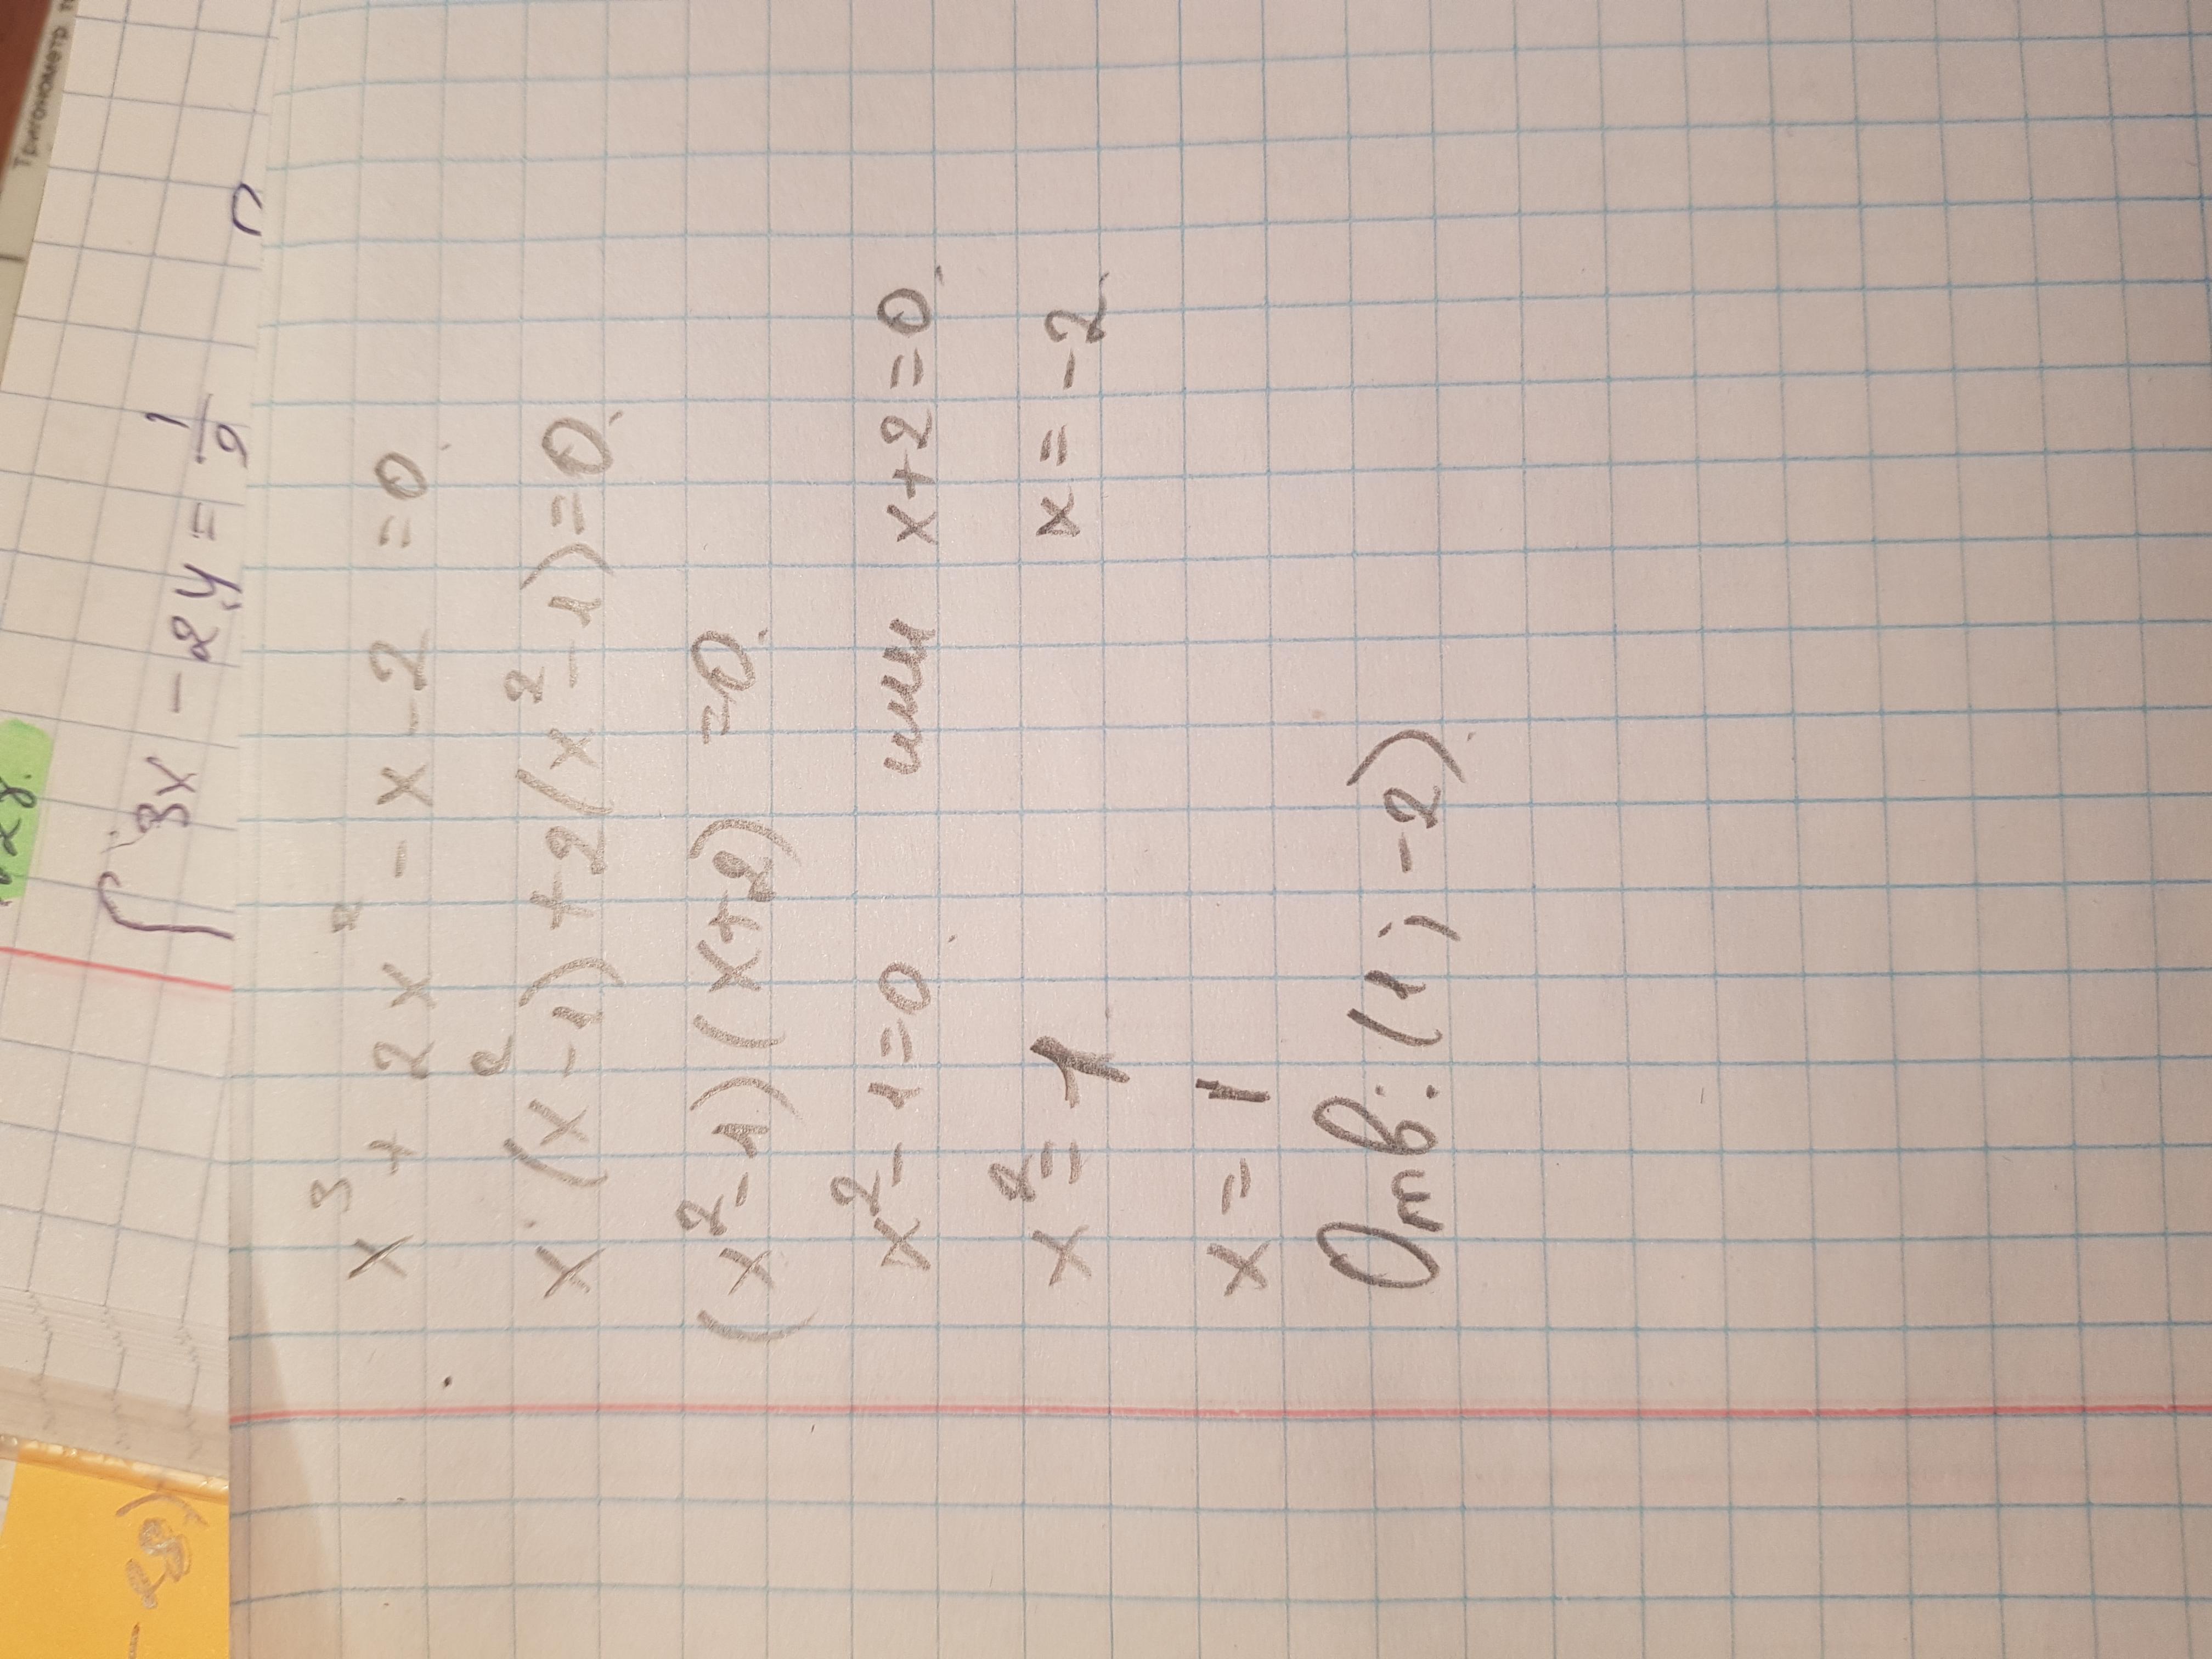 Тригонометр
28.
3x - 2y = 1/9
x³ + 2x² - x - 2 = 0
x·(x² - 1) + 2(x² - 1) = 0.
(x² - 1)(x + 2) = 0.
x² - 1 = 0 или x + 2 = 0
x² = 1 x = -2
x = 1
Отв: (1; -2)